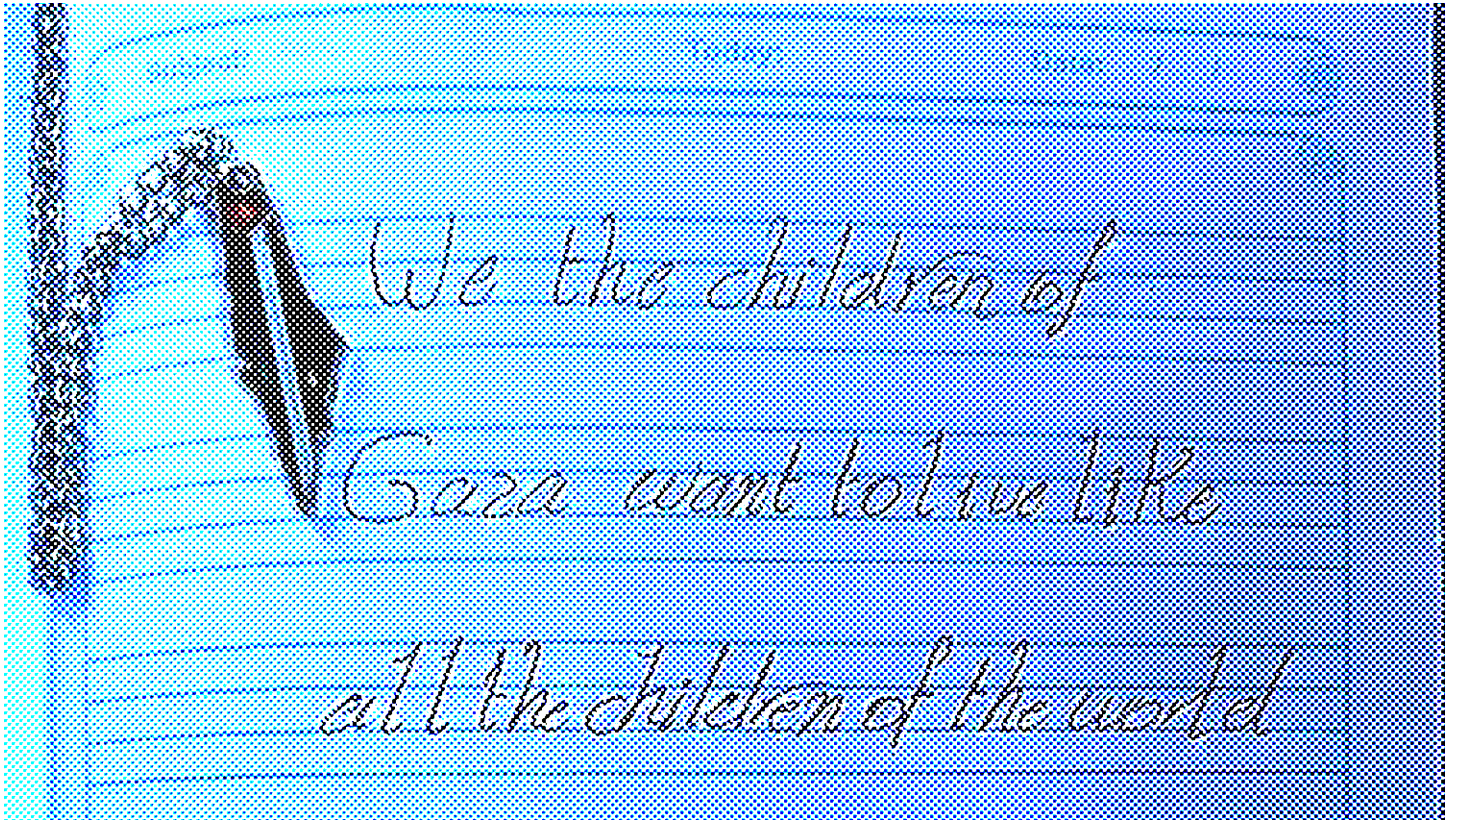 Today
We the children of
Gaza want to live like
all the children of the world